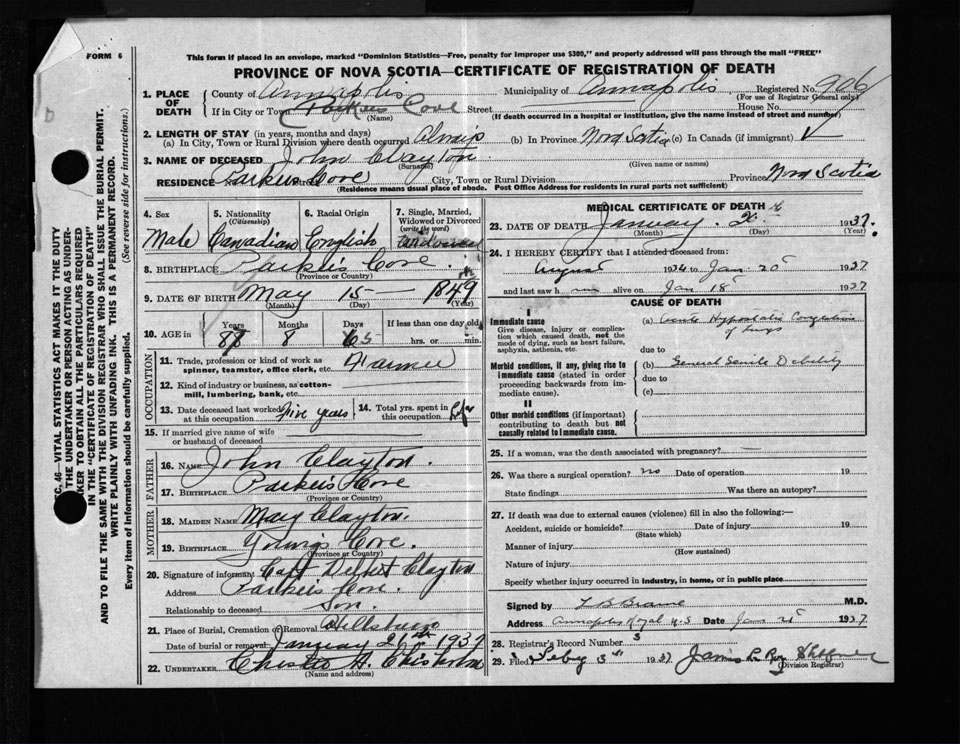 FORM 6
This form if placed in an envelope, marked "Dominion Statistics—Free, penalty for improper use $300," and properly addressed will pass through the mail "FREE"
PROVINCE OF NOVA SCOTIA—CERTIFICATE OF REGISTRATION OF DEATH
1. PLACE OF DEATH County of Annapolis Municipality of Annapolis Registered No. 906
(For use of Registrar General only)
If in City or Town Parkers Cove Street House No.
(Name) (If death occurred in a hospital or institution, give the name instead of street and number)
2. LENGTH OF STAY (in years, months and days)
(a) In City, Town or Rural Division where death occurred Always (b) In Province Nova Scotia (c) In Canada (if immigrant)
3. NAME OF DECEASED John Clayton
(Surname) (Given name or names)
RESIDENCE Parkers Cove City, Town or Rural Division Province Nova Scotia
(Residence means usual place of abode. Post Office Address for residents in rural parts not sufficient)
4. Sex Male
5. Nationality (Citizenship) Canadian
6. Racial Origin English
7. Single, Married, Widowed or Divorced (write the word) Widowed
8. BIRTHPLACE Parker's Cove.
(Province or Country)
9. DATE OF BIRTH May 15 — 1849
(Month) (Day) (Year)
10. AGE in Years Months Days If less than one day old
8 hrs. or min.
OCCUPATION
11. Trade, profession or kind of work as spinner, teamster, office clerk, etc. Farmer
12. Kind of industry or business, as cotton-mill, lumbering, bank, etc.
13. Date deceased last worked at this occupation Five years
14. Total yrs. spent in this occupation Life
15. If married give name of wife or husband of deceased
FATHER
16. NAME John Clayton.
17. BIRTHPLACE Parker's Cove
(Province or Country)
MOTHER
18. MAIDEN NAME May Clayton.
19. BIRTHPLACE Young's Cove.
(Province or Country)
20. Signature of informant Capt Delbert Clayton
Address Parker's Cove.
Relationship to deceased Son.
21. Place of Burial, Cremation or Removal Hillsburn
Date of burial or removal January 26th 1937
22. UNDERTAKER H. Chisholm
(Name and address)
MEDICAL CERTIFICATE OF DEATH
23. DATE OF DEATH January 1937.
(Month) (Day) (Year)
24. I HEREBY CERTIFY that I attended deceased from:
August 1934 to Jan. 20 1937
and last saw h im alive on Jan 18 1937
CAUSE OF DEATH
I
Immediate cause
Give disease, injury or complication which caused death, not the mode of dying, such as heart failure, asphyxia, asthenia, etc.
(a) Acute Hypostatic Congestion of Lungs
due to
Morbid conditions, if any, giving rise to immediate cause (stated in order proceeding backwards from immediate cause).
(b) General Senile Debility
due to
(c)
II
Other morbid conditions (if important) contributing to death but not causally related to immediate cause.
25. If a woman, was the death associated with pregnancy? —
26. Was there a surgical operation? no Date of operation 19
State findings Was there an autopsy?
27. If death was due to external causes (violence) fill in also the following:—
Accident, suicide or homicide? Date of injury 19
(State which)
Manner of injury
(How sustained)
Nature of injury
Specify whether injury occurred in industry, in home, or in public place
Signed by M.D.
Address Annapolis Royal N.S Date Jan 1937
28. Registrar's Record Number 3
29. Filed Feby 3rd 1937 James
(Division Registrar)
SEC. 46—VITAL STATISTICS ACT MAKES IT THE DUTY
OF THE UNDERTAKER OR PERSON ACTING AS UNDER-
TAKER TO OBTAIN ALL THE PARTICULARS REQUIRED
IN THE "CERTIFICATE OF REGISTRATION OF DEATH"
AND TO FILE THE SAME WITH THE DIVISION REGISTRAR WHO SHALL ISSUE THE BURIAL PERMIT.
WRITE PLAINLY WITH UNFADING INK. THIS IS A PERMANENT RECORD.
Every item of information should be carefully supplied. (See reverse side for instructions.)